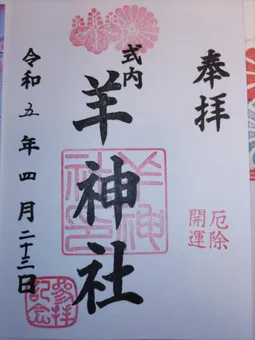 奉拝
厄除
開運
式内
羊神社
羊神
社印
令和五年四月二十三日
参拝
記念